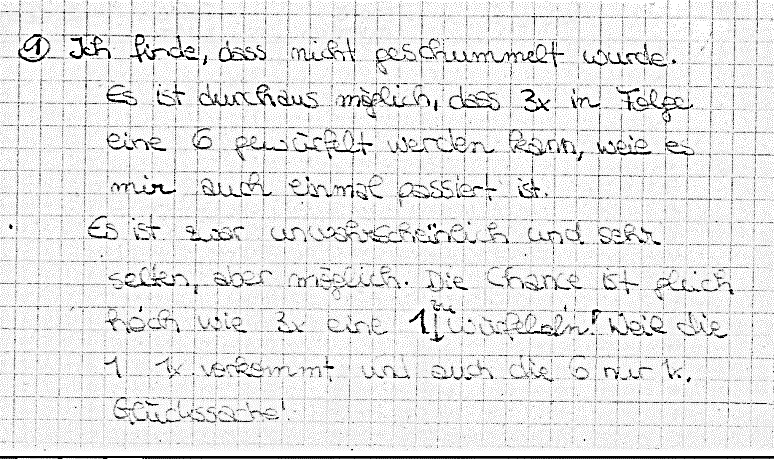 ① Ich finde, dass nicht geschummelt wurde.
Es ist durchaus möglich, dass 3x in Folge
eine 6 gewürfelt werden kann, weie es
mir auch einmal passiert ist.
Es ist zwar unwahrscheinlich und sehr
selten, aber möglich. Die Chance ist gleich
hoch wie 3x eine 1 zu würfeln! Weil die
1 1x vorkommt und auch die 6 nur 1x.
Glückssache!